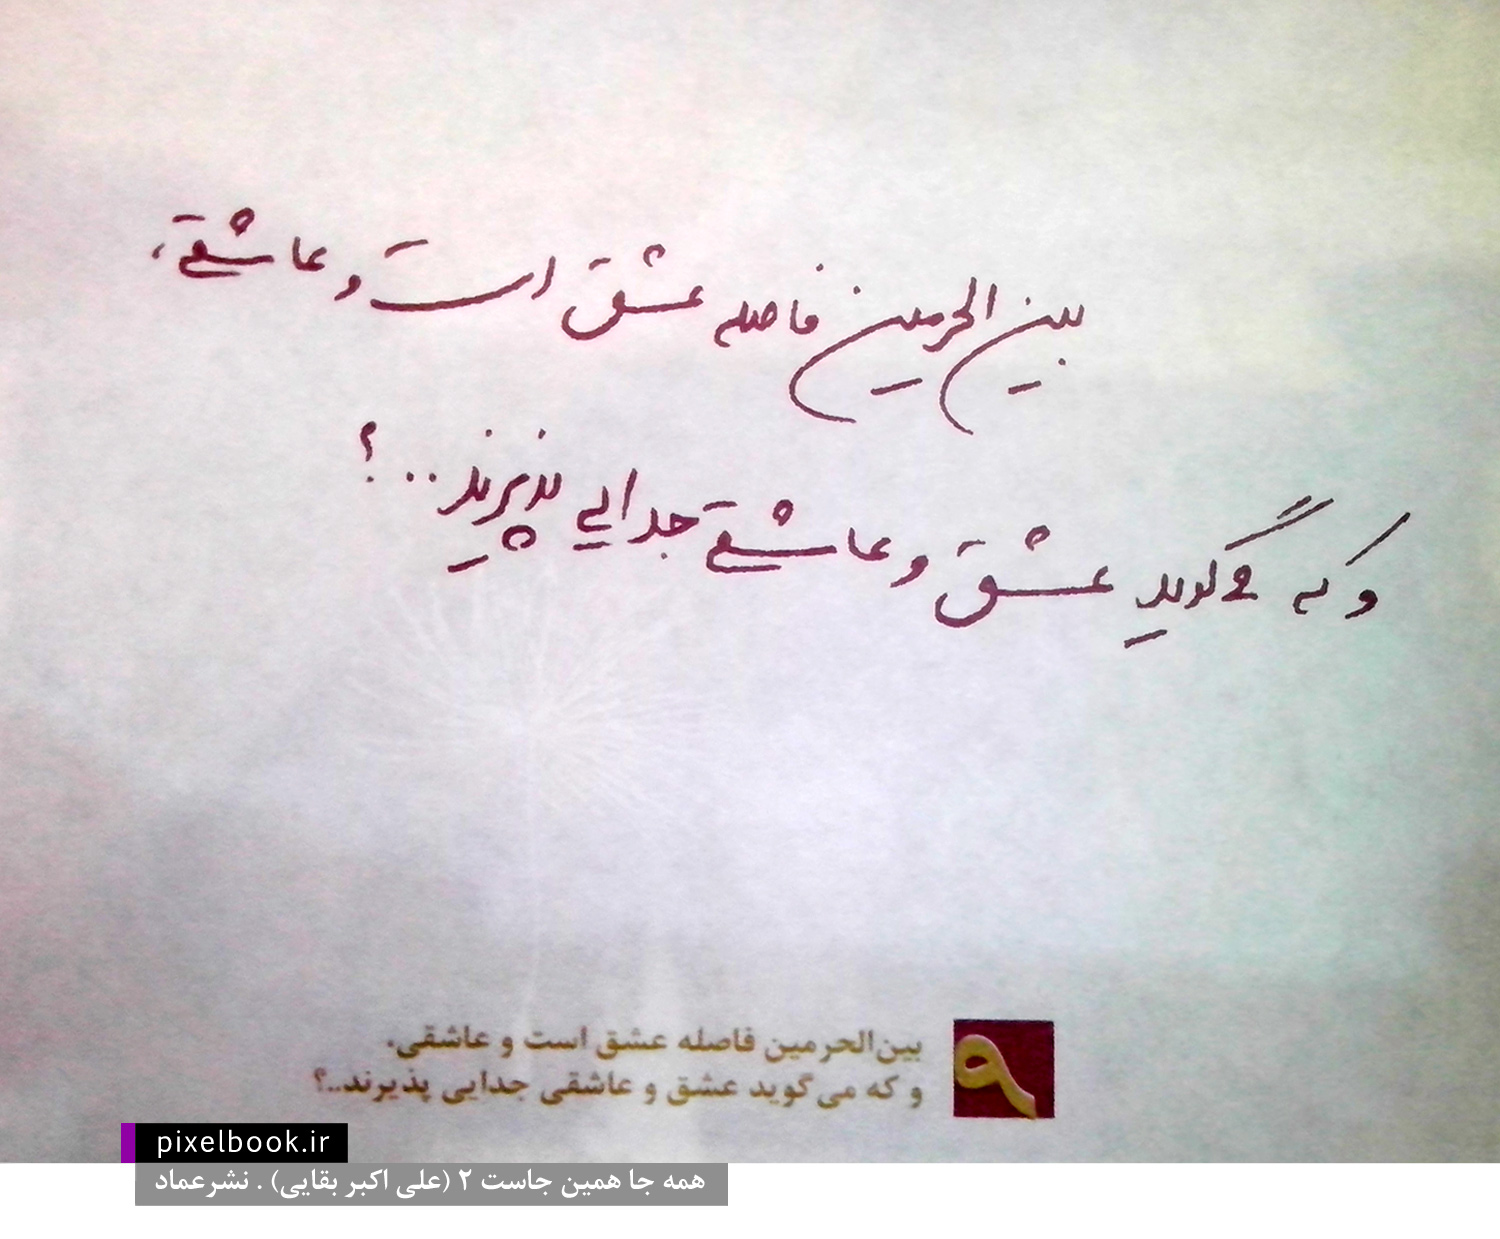 بین الحرمین فاصله عشق است و عاشقی،
و که می‌گوید عشق و عاشقی جدایی پذیرند..؟
۹
بین‌الحرمین فاصله عشق است و عاشقی.
و که می‌گوید عشق و عاشقی جدایی پذیرند..؟
pixelbook.ir
همه جا همین جاست ۲ (علی اکبر بقایی) . نشرعماد